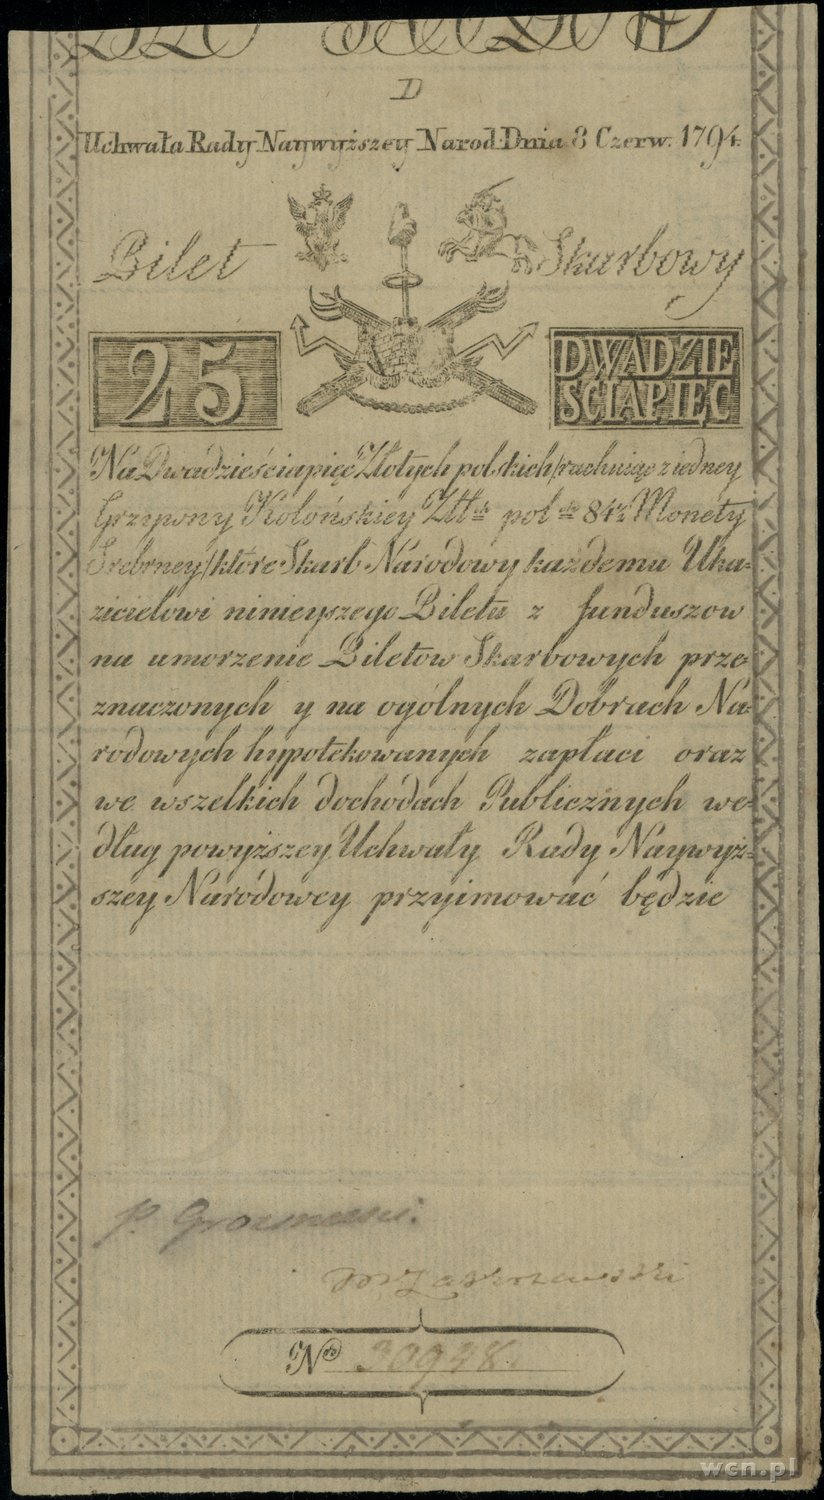 D
Uchwała Rady Naywyższey Narod. Dnia 8 Czerw. 1794.
Bilet Skarbowy
25
DWADZIE
ŚCIAPIĘĆ
Na Dwadzieściapięć Złotych polskich/rachuiąc z iedney
Grzywny Kolońskiey Złł. pol. 84½ Monety
Srebrney/które Skarb Narodowy każdemu Uka-
zicielowi ninieyszego Biletu z funduszow
na umorzenie Biletow Skarbowych prze-
znaczonych y na ogólnych Dobrach Na-
rodowych hypotekowanych zapłaci oraz
we wszelkich dochodach Publicznych we-
dług powyższey Uchwały Rady Naywyż-
szey Narodowey przyimować będzie
B S
P.
M. Zakrzewski
Nro 30948.
wcn.pl